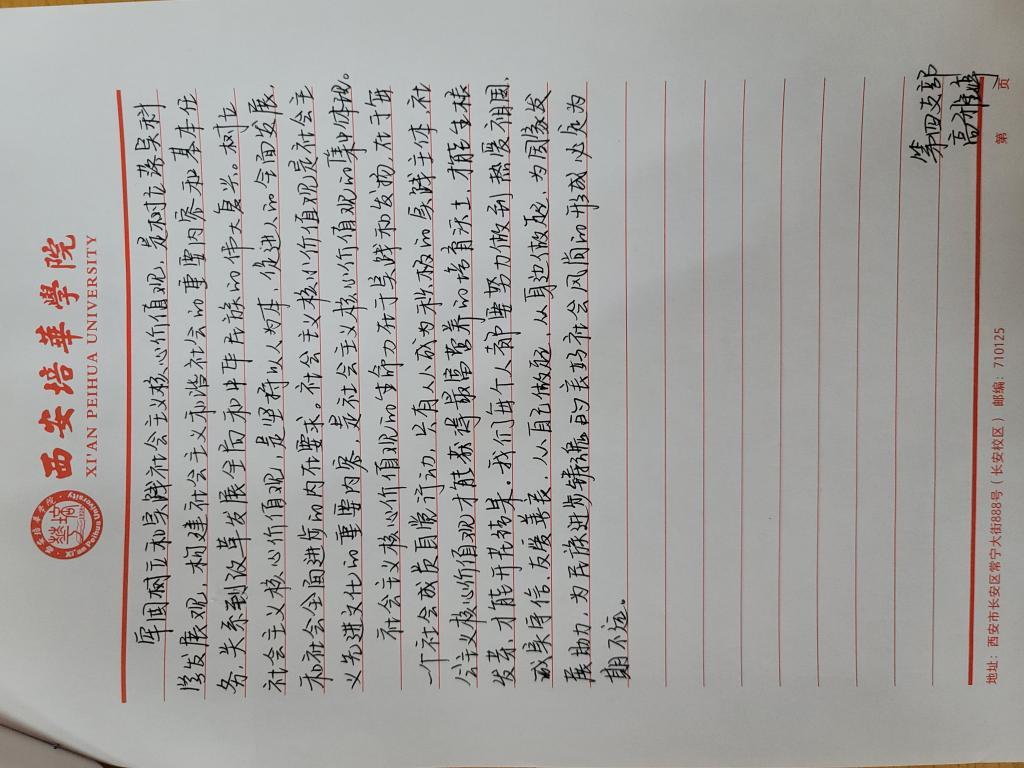 西安培華學院
XI'AN PEIHUA UNIVERSITY
牢固树立和实践社会主义核心价值观,是树立落实科
学发展观,构建社会主义和谐社会的重要内容和基本任
务,关系到改革发展全局和中华民族的伟大复兴。树立
社会主义核心价值观,是坚持以人为本,促进人的全面发展,
和社会全面进步的内在要求。社会主义核心价值观是社会主
义先进文化的重要内容,是社会主义核心价值观的集中体现。
社会主义核心价值观的生命力在于实践和发扬,在于每
一个社会成员日常行动,只有人人成为积极的实践主体,社
会主义核心价值观才能获得最富营养的培育沃土,才能生根
发芽,才能开花结果。我们每个人都要努力做到热爱祖国,
诚实守信,友爱善良,从自己做起,从身边做起,为国家发
展助力,为民族进步
的良好社会风尚的形成必定为
期不远。
第四支部
高
第 页
地址:西安市长安区常宁大街888号(长安校区) 邮编:710125